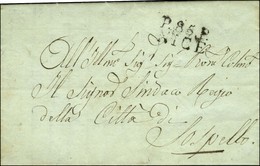 P.85.P.
NICE
All'Illmo Sigr Sigr Pron Colmo
Il Signor Sindaco Regio
della Città di
Sospello